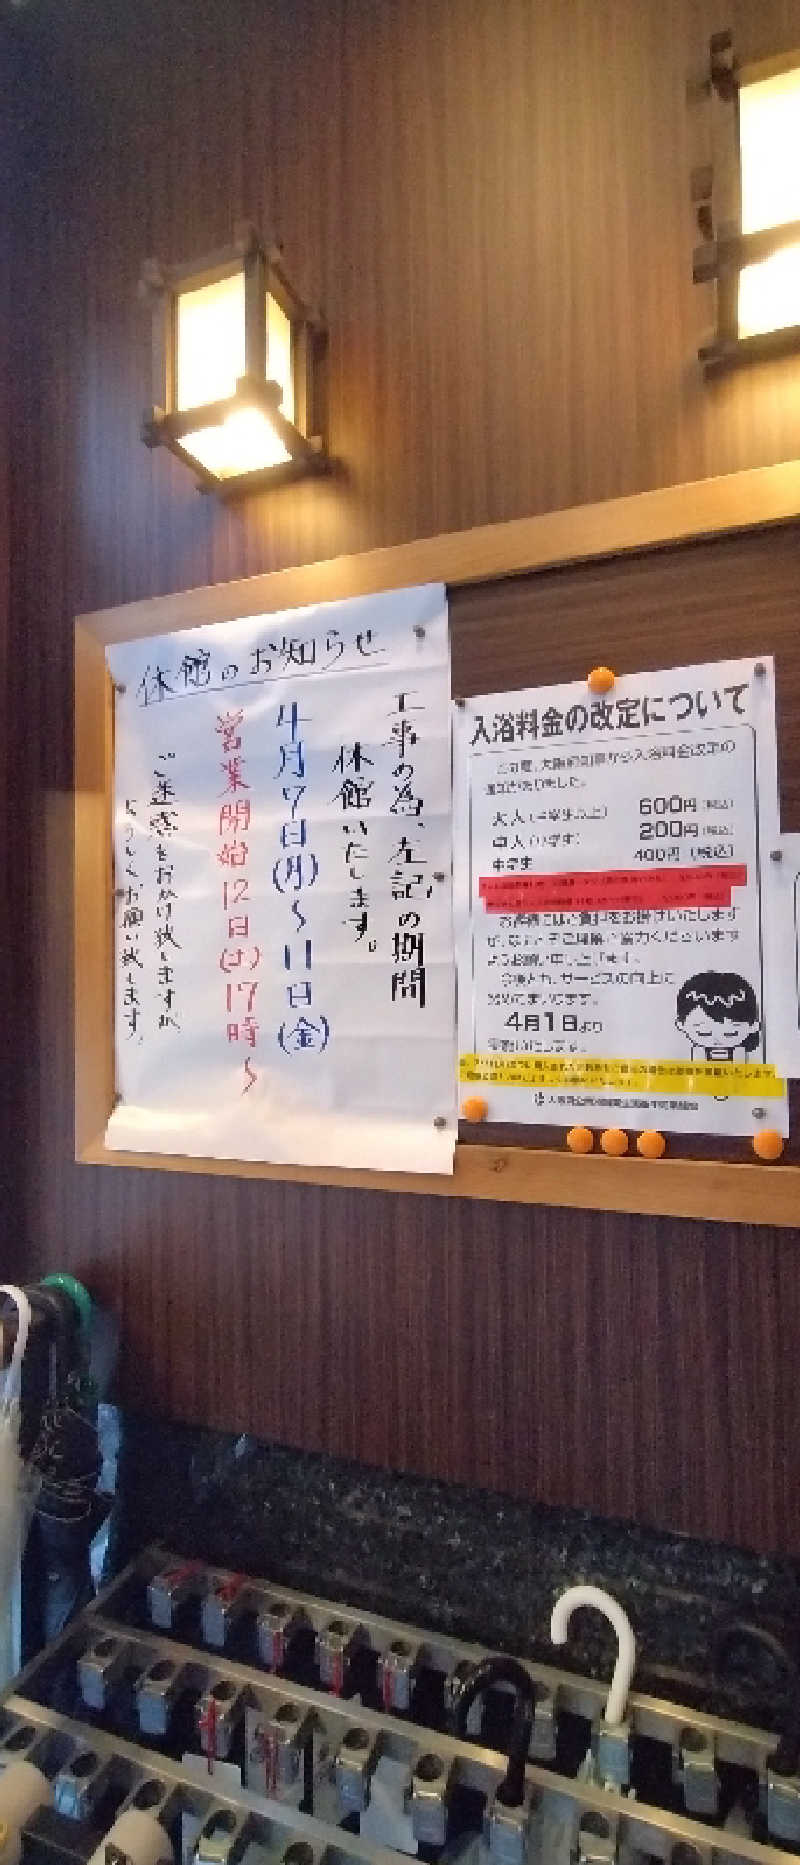 休館のお知らせ
工事の為、左記の期間
休館いたします。
4月7日(月)～11日(金)
営業開始12日(土)17時～
ご迷惑をおかけ致しますが、
よろしくお願い致します。
入浴料金の改定について
この度、大阪府知事から入浴料金改定の
大人(中学生以上) 600円(税込)
中人(小学生) 200円(税込)
中学生 400円(税込)
お客様にはご負担をお掛けいたします
が、なにとぞご理解ご協力くださいます
ようお願い申し上げます。
今後とも、サービスの向上に
努めてまいります。
4月1日より
実施いたします。